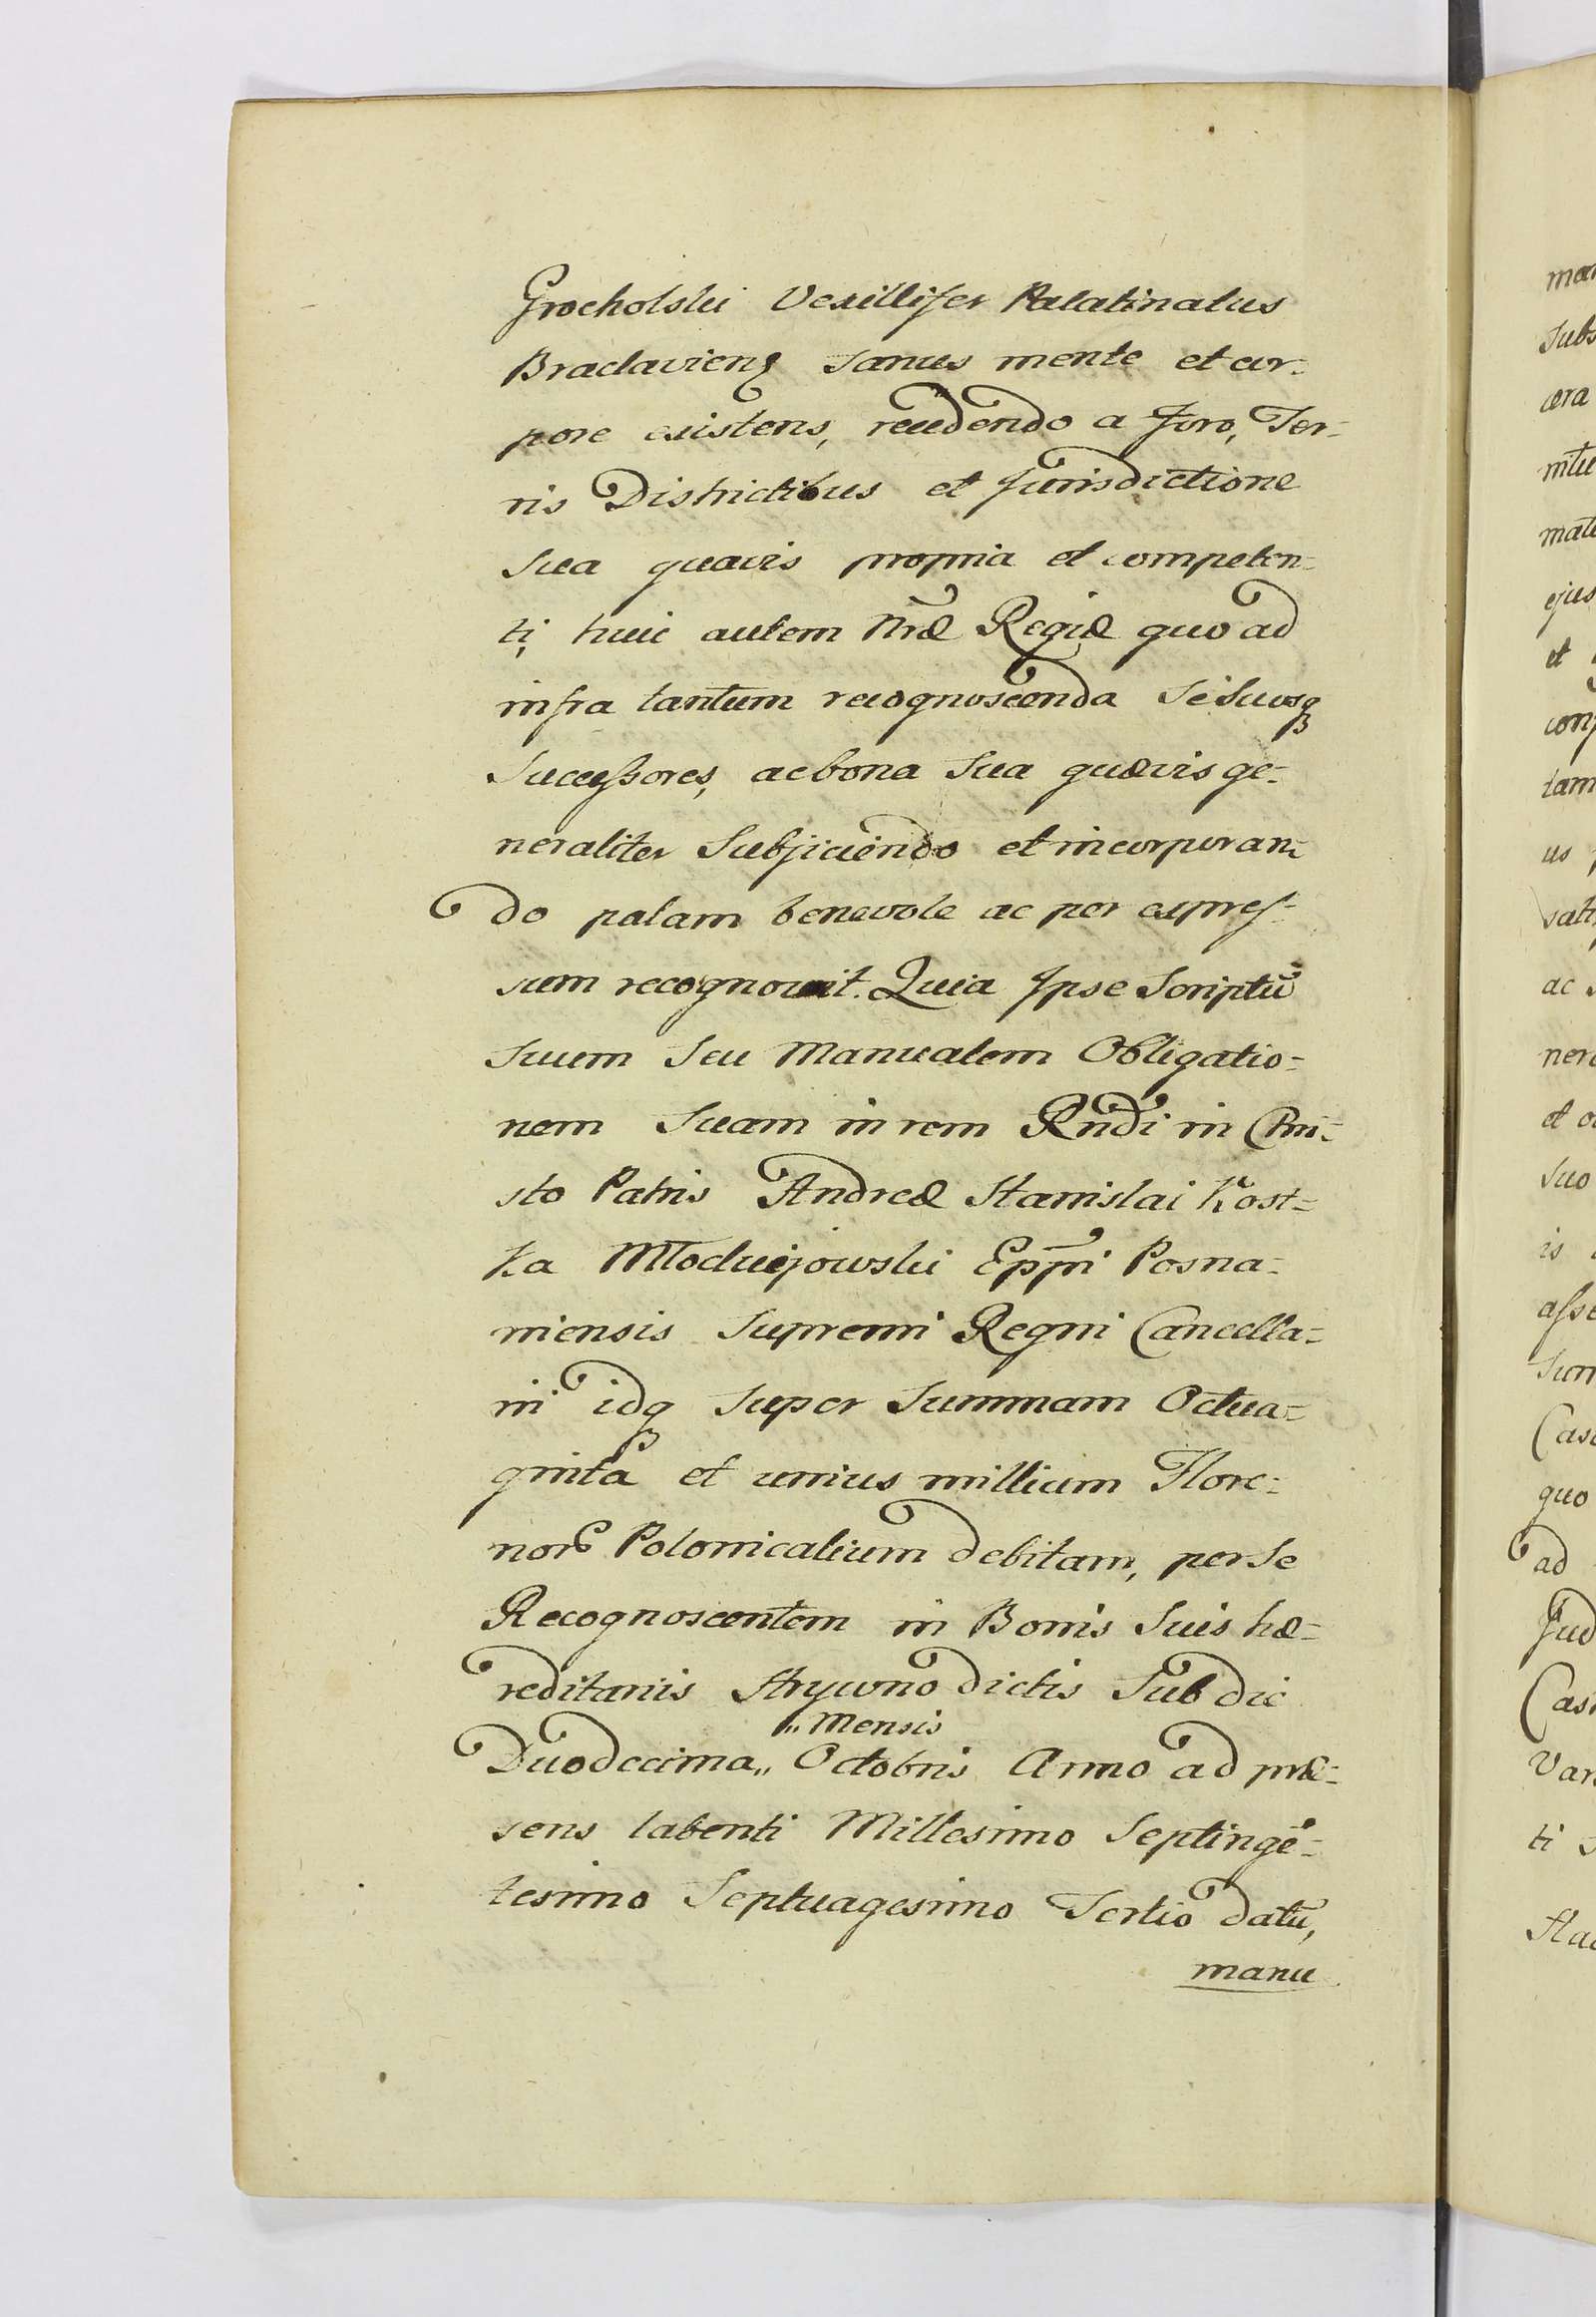 Grocholski Vexillifer Palatinatus
Braclaviens Sanus mente et cor-
pore existens, recedendo a Foro, Ter-
ris Districtibus et Jurisdictione
Sua quavis propria et competen-
ti, huic autem Nræ Regiæ quo ad
infra tantum recognoscenda Se Suosq
Successores, ac bona Sua quævis ge-
neraliter Subjiciendo et incorporan-
do palam benevole ac per expres-
sum recognovit. Quia Ipse Scriptū
Suum Seu Manualem Obligatio-
nem Suam in rem Rndi in Chri-
sto Patris Andreæ Stanislai Kost-
ka Młodziejowski Eppi Posna-
niensis Supremi Regni Cancella-
rii idq Super Summam Octua-
ginta et unius millium Flore-
nor Polonicalium debitam, per Se
Recognoscentem in Bonis Suis hæ-
reditariis Strywno dictis Sub die
„ Mensis
Duodecima „ Octobris Anno ad præ-
sens labenti Millesimo Septingē-
tesimo Septuagesimo Tertio datū,
manu
mar
Subs
cera
mtu
mate
ejus
et
conf
tam
us
sati
ac
nera
et
Suo
is
asse
Sum
Cas
quo
ad
Jud
Cas
Var
ti